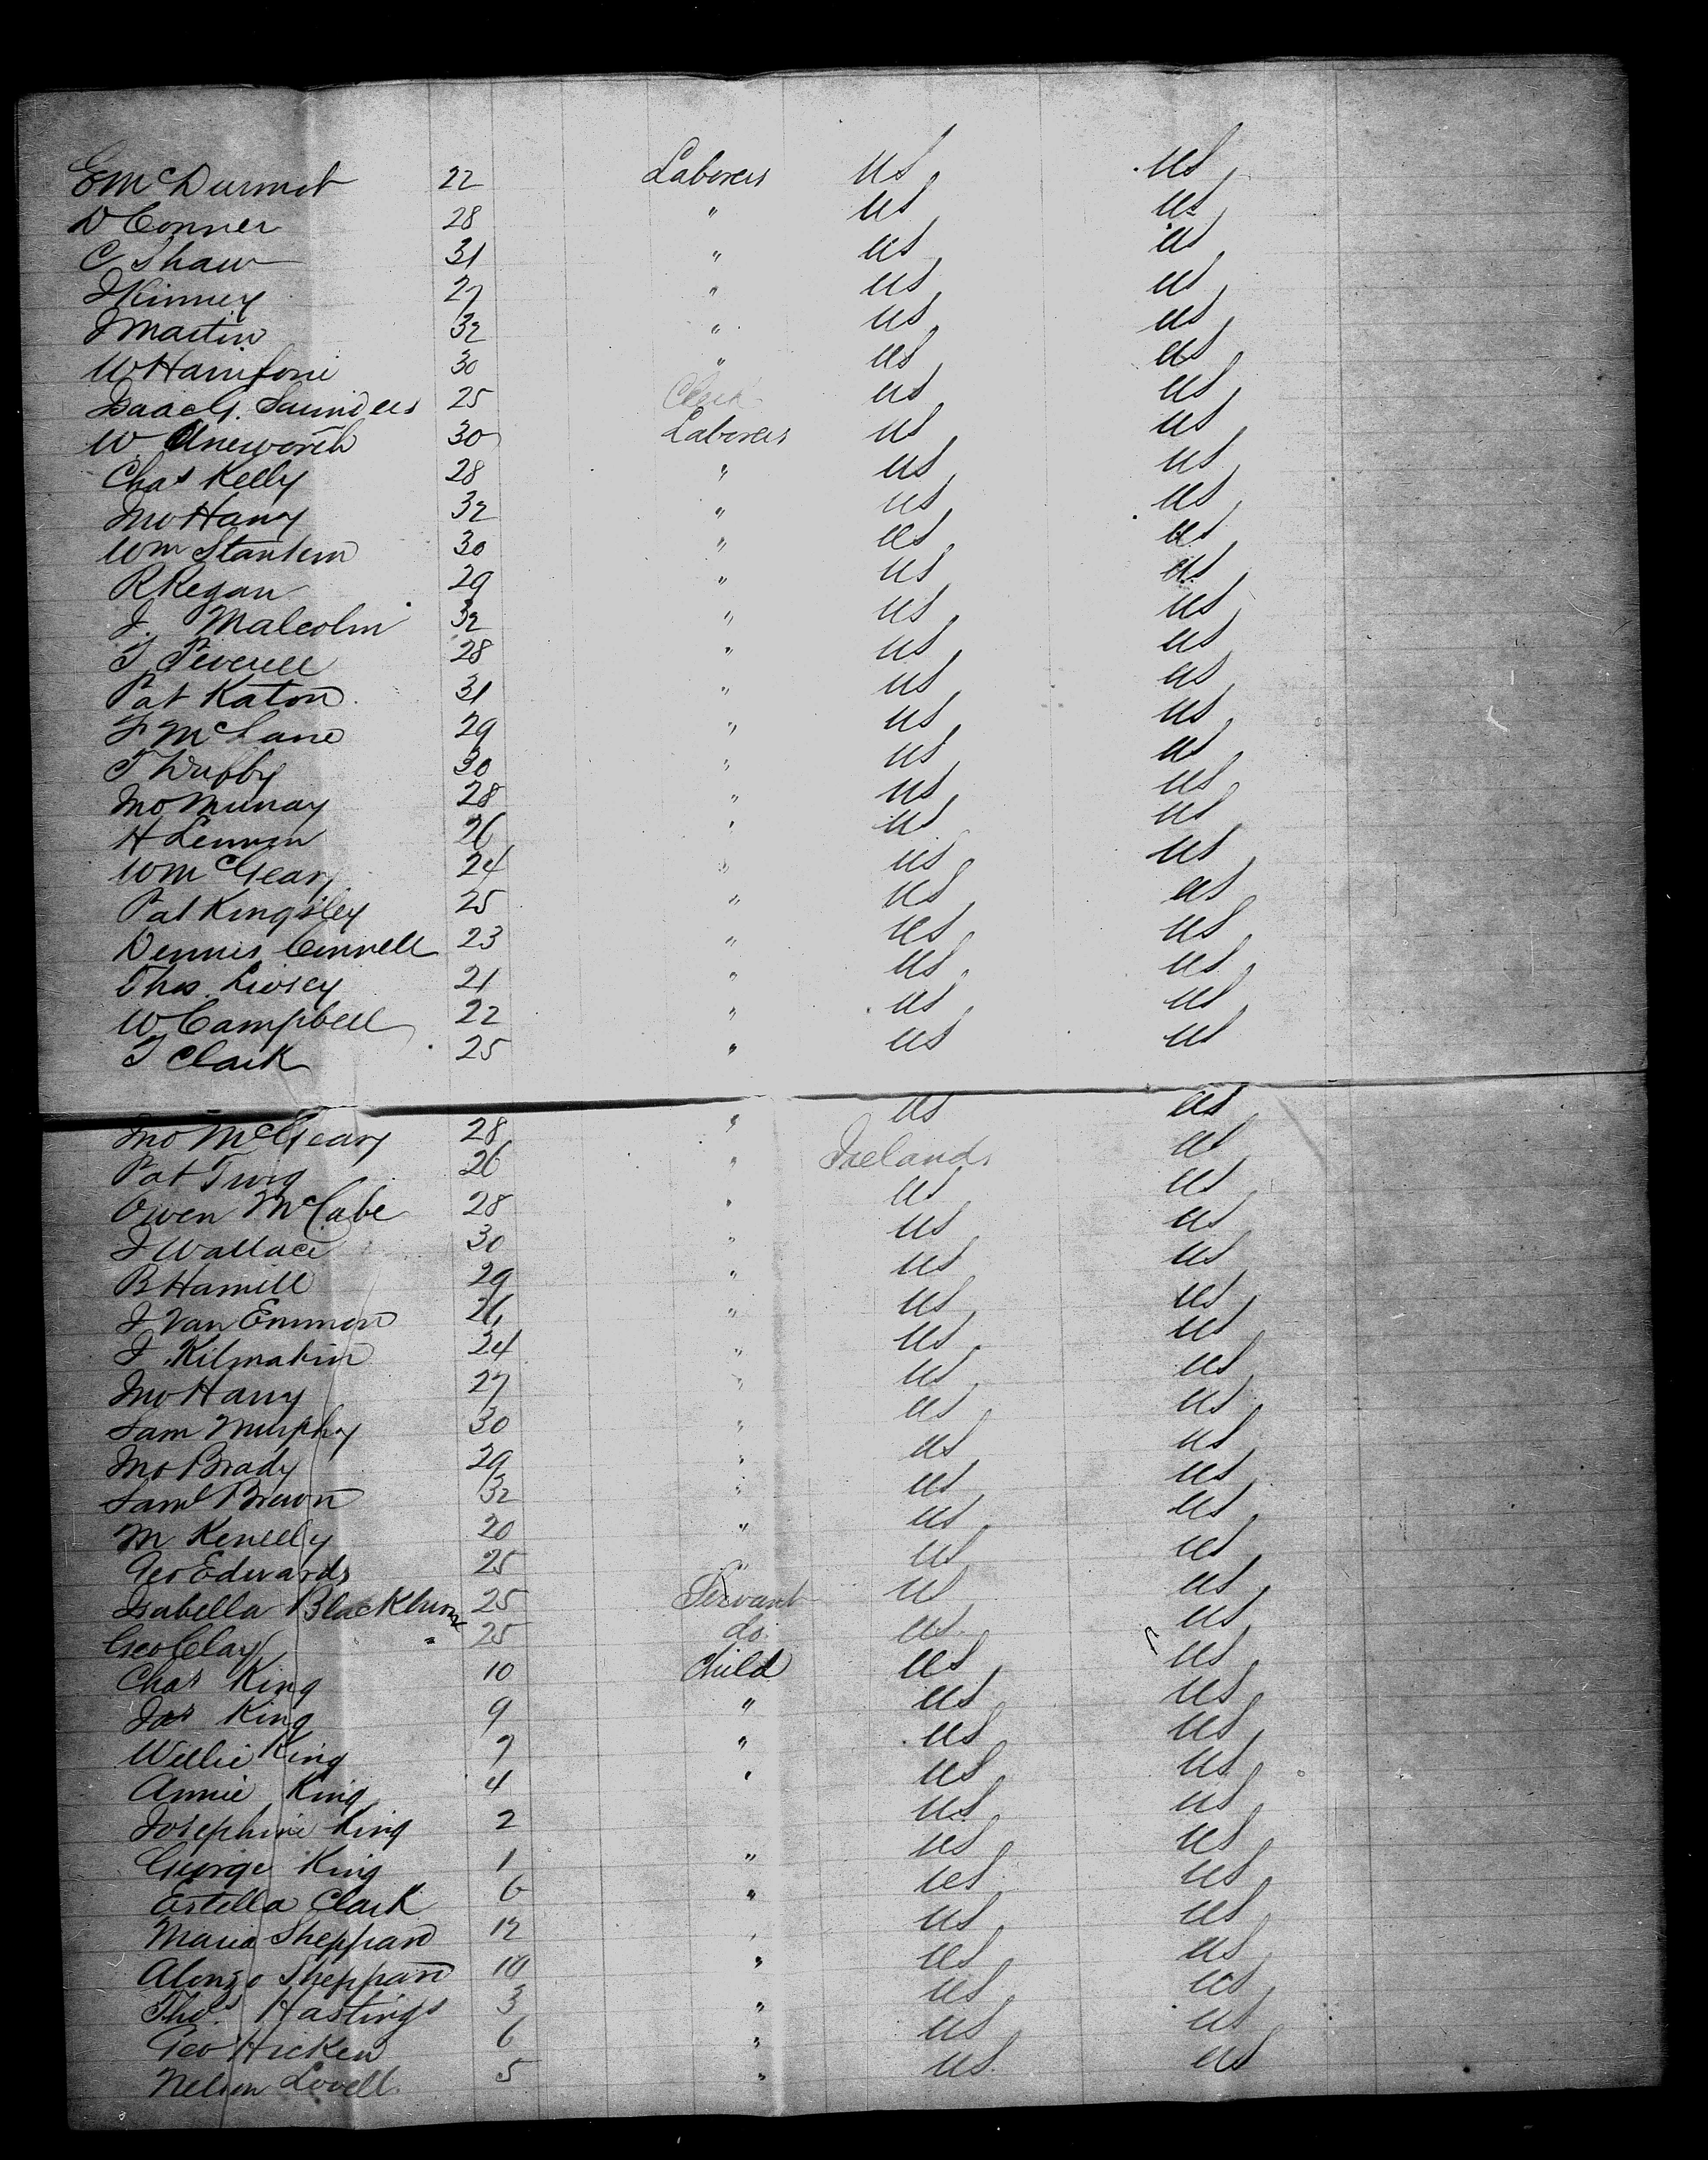 E McDurmot 22 Laborer US US
D Conner 28 " US US
C Shaw 31 " US US
J Kinney 27 " US US
J Martin 32 " US US
W 30 " US US
Isaac G. Saunders 25 Clerk US US
W. 30 Laborer US US
Chas Kelly 28 " US US
Jno Harry 32 " US US
Wm 30 " US US
R Regan 29 " US US
J. Malcolm 32 " US US
T Peverell 28 " US US
Pat Katon 31 " US US
F McLane 29 " US US
T 30 " US US
Jno Murray 28 " US US
H Lennon 26 " US US
Wm McGeary 24 " US US
Pat Kingsley 25 " US US
Dennis Connell 23 " US US
Thos. Livsey 21 " US US
W Campbell 22 " US US
T Clark 25 " US US
Jno McGeary 28 " US US
Pat 26 " Ireland US
Owen McCabe 28 " US US
J Wallace 30 " US US
B Hamill 29 " US US
J Van Emmon 26 " US US
J Kilmakin 24 " US US
Jno Harry 27 " US US
Sam Murphy 30 " US US
Jno Brady 29 " US US
Saml Brown 32 " US US
M Keneely 20 " US US
Geo Edwards 25 " US US
Isabella Blackburn 25 Servant US US
Geo Clay 25 do. US US
Chas King 10 Child US US
Jas King 9 " US US
Willie King 7 " US US
Annie King 4 " US US
Josephine King 2 US US
George King 1 " US US
Estella Clark 6 " US US
Maria Sheppard 12 " US US
Alonzo Sheppard 10 " US US
Thos. Hastings 3 " US US
Geo Hicken 6 " US US
Nelson Lovell 5 " US US